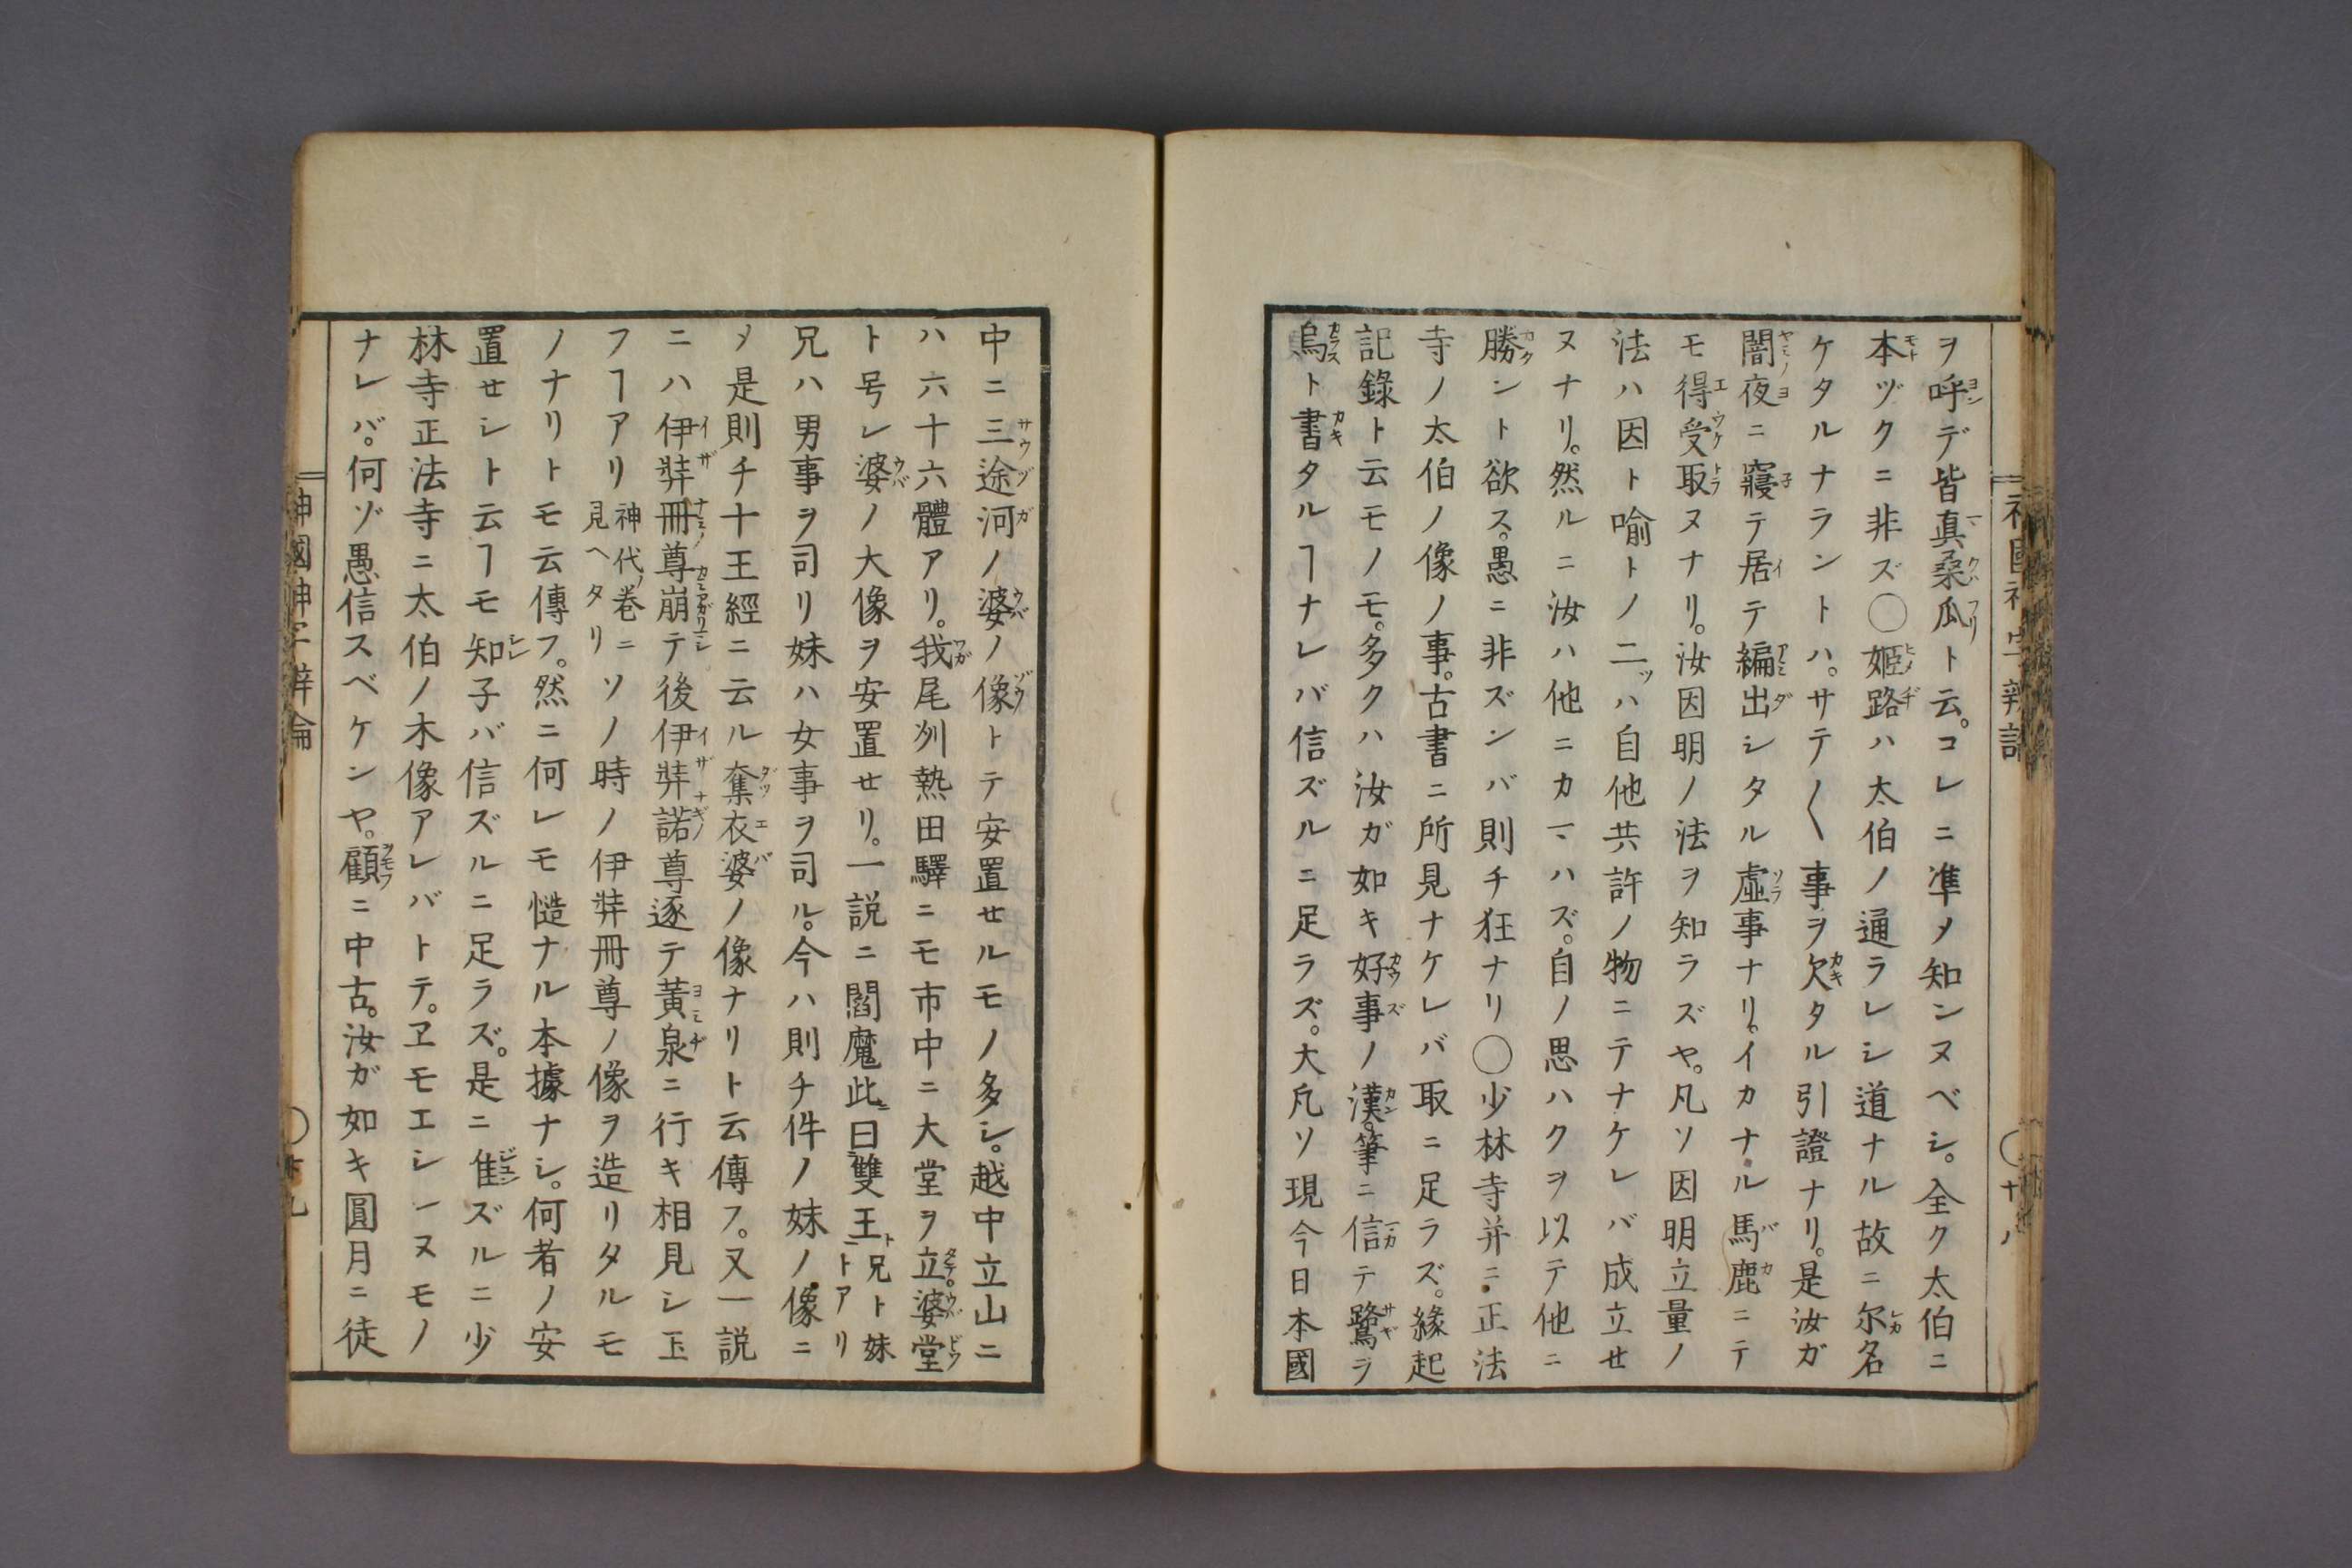 ヲ呼デ皆真桑瓜ト云。コレニ準〆知ンヌベシ。全ク太伯ニ
本ヅクニ非ズ○姫路ハ太伯ノ通ラレシ道ナル故ニ尓名
ケタルナラントハ。サテ〳〵事ヲ欠タル引證ナリ。是汝ガ
闇夜ニ寢テ居テ編出シタル虚事ナリ。イカナル馬鹿ニテ
モ得受取ヌナリ。汝因明ノ法ヲ知ラズヤ。凡ソ因明立量ノ
法ハ因ト喩トノ二ツハ自他共許ノ物ニテナケレバ成立セ
ヌナリ。然ルニ汝ハ他ニカマハズ。自ノ思ハクヲ以テ他ニ
勝ント欲ス。愚ニ非ズンバ則チ狂ナリ○少林寺并ニ正法
寺ノ太伯ノ像ノ事。古書ニ所見ナケレバ取ニ足ラズ。緣起
記錄ト云モノモ。多クハ汝ガ如キ好事ノ漢。筆ニ信テ鷺ヲ
烏ト書タルヿナレバ信ズルニ足ラズ。大凡ソ現今日本國
中ニ三途河ノ婆ノ像トテ安置セルモノ多シ。越中立山ニ
ハ六十六體アリ。我尾州熱田驛ニモ市中ニ大堂ヲ立。婆堂
ト号シ婆ノ大像ヲ安置セリ。一説ニ閻魔此ニ曰雙王ト兄ト妹トアリ
兄ハ男事ヲ司リ妹ハ女事ヲ司ル。今ハ則チ件ノ妹ノ像ニ
〆是則チ十王經ニ云ル奪衣婆ノ像ナリト云傳フ。又一説
ニハ伊弉冊尊崩テ後伊弉諾尊逐テ黃泉ニ行キ相見シ玉
フヿアリ神代ノ巻ニ見ヘタリソノ時ノ伊弉冊尊ノ像ヲ造リタルモ
ノナリトモ云傳フ。然ニ何レモ慥ナル本據ナシ。何者ノ安
置セシト云ヿモ知子バ信ズルニ足ラズ。是ニ准ズルニ少
林寺正法寺ニ太伯ノ木像アレバトテ。ヱモエシレヌモノ
ナレバ。何ゾ愚信スベケンヤ。顧ニ中古。汝ガ如キ圓月ニ徒
神國神字辨論